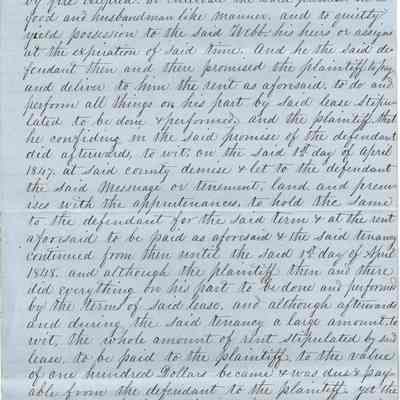 good and husbandman like manner, and to quietly
yield possession to the said Webb his heirs or assigns
at the expiration of said time. And he the said de-
fendant then and there promised the plaintiff to pay
and deliver to him the rent as aforesaid, to do and
perform all things on his part by said lease stipu-
lated to be done & performed, and the plaintiff that
he confiding in the said promise of the defendant
did afterwards, to wit, on the said 1st day of April
1847. at said county demise & let to the defendant
the said Messuage or tenement, land and prem-
ises with the appurtenances, to hold the same
to the defendant for the said term & at the rent
aforesaid to be paid as aforesaid & the said tenancy
continued from then until the said 1st day of April
1848. and although the plaintiff then and there
did everything on his part to be done and performed
by the terms of said lease, and although afterwards
and during the said tenancy a large amount, to
wit, the whole amount of rent stipulated by said
lease, to be paid to the plaintiff, to the value
of one hundred Dollars became & was due & pay-
able from the defendant to the plaintiff yet the